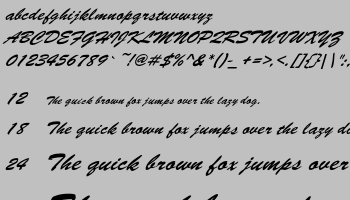 abcdefghijklmnopqrstuvwxyz
ABCDEFGHIJKLMNOPQRSTUVWXYZ
0123456789` ~!@#$%^&*()-_ +=>,<.[]{}/|\":
12 The quick brown fox jumps over the lazy dog.
18 The quick brown fox jumps over the lazy
24 The quick brown fox jumps over